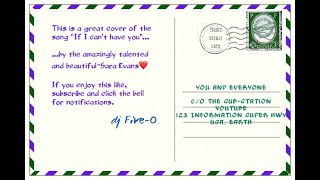 This is a great cover of the
song "If I can't have you"...
...by the amazingly talented
and beautiful-Sara Evans❤️
If you enjoy this like,
subscribe and click the bell
for notifications.
dj Five-O
YOU AND EVERYONE
C/O THE SUB-STATION
YOUTUBE
123 INFORMATION SUPER HWY
USA, EARTH